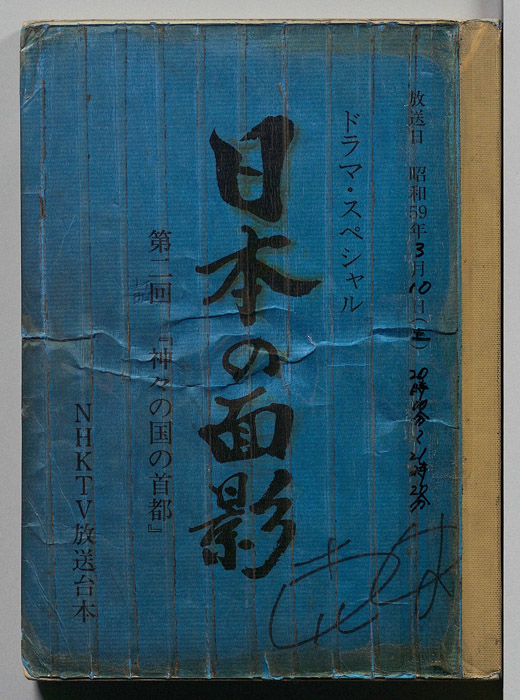 放送日 昭和59年3月10日(土) 20時00分〜21時20分
ドラマ・スペシャル
日本の面影
第二回『神々の国の首都』
NHKTV放送台本